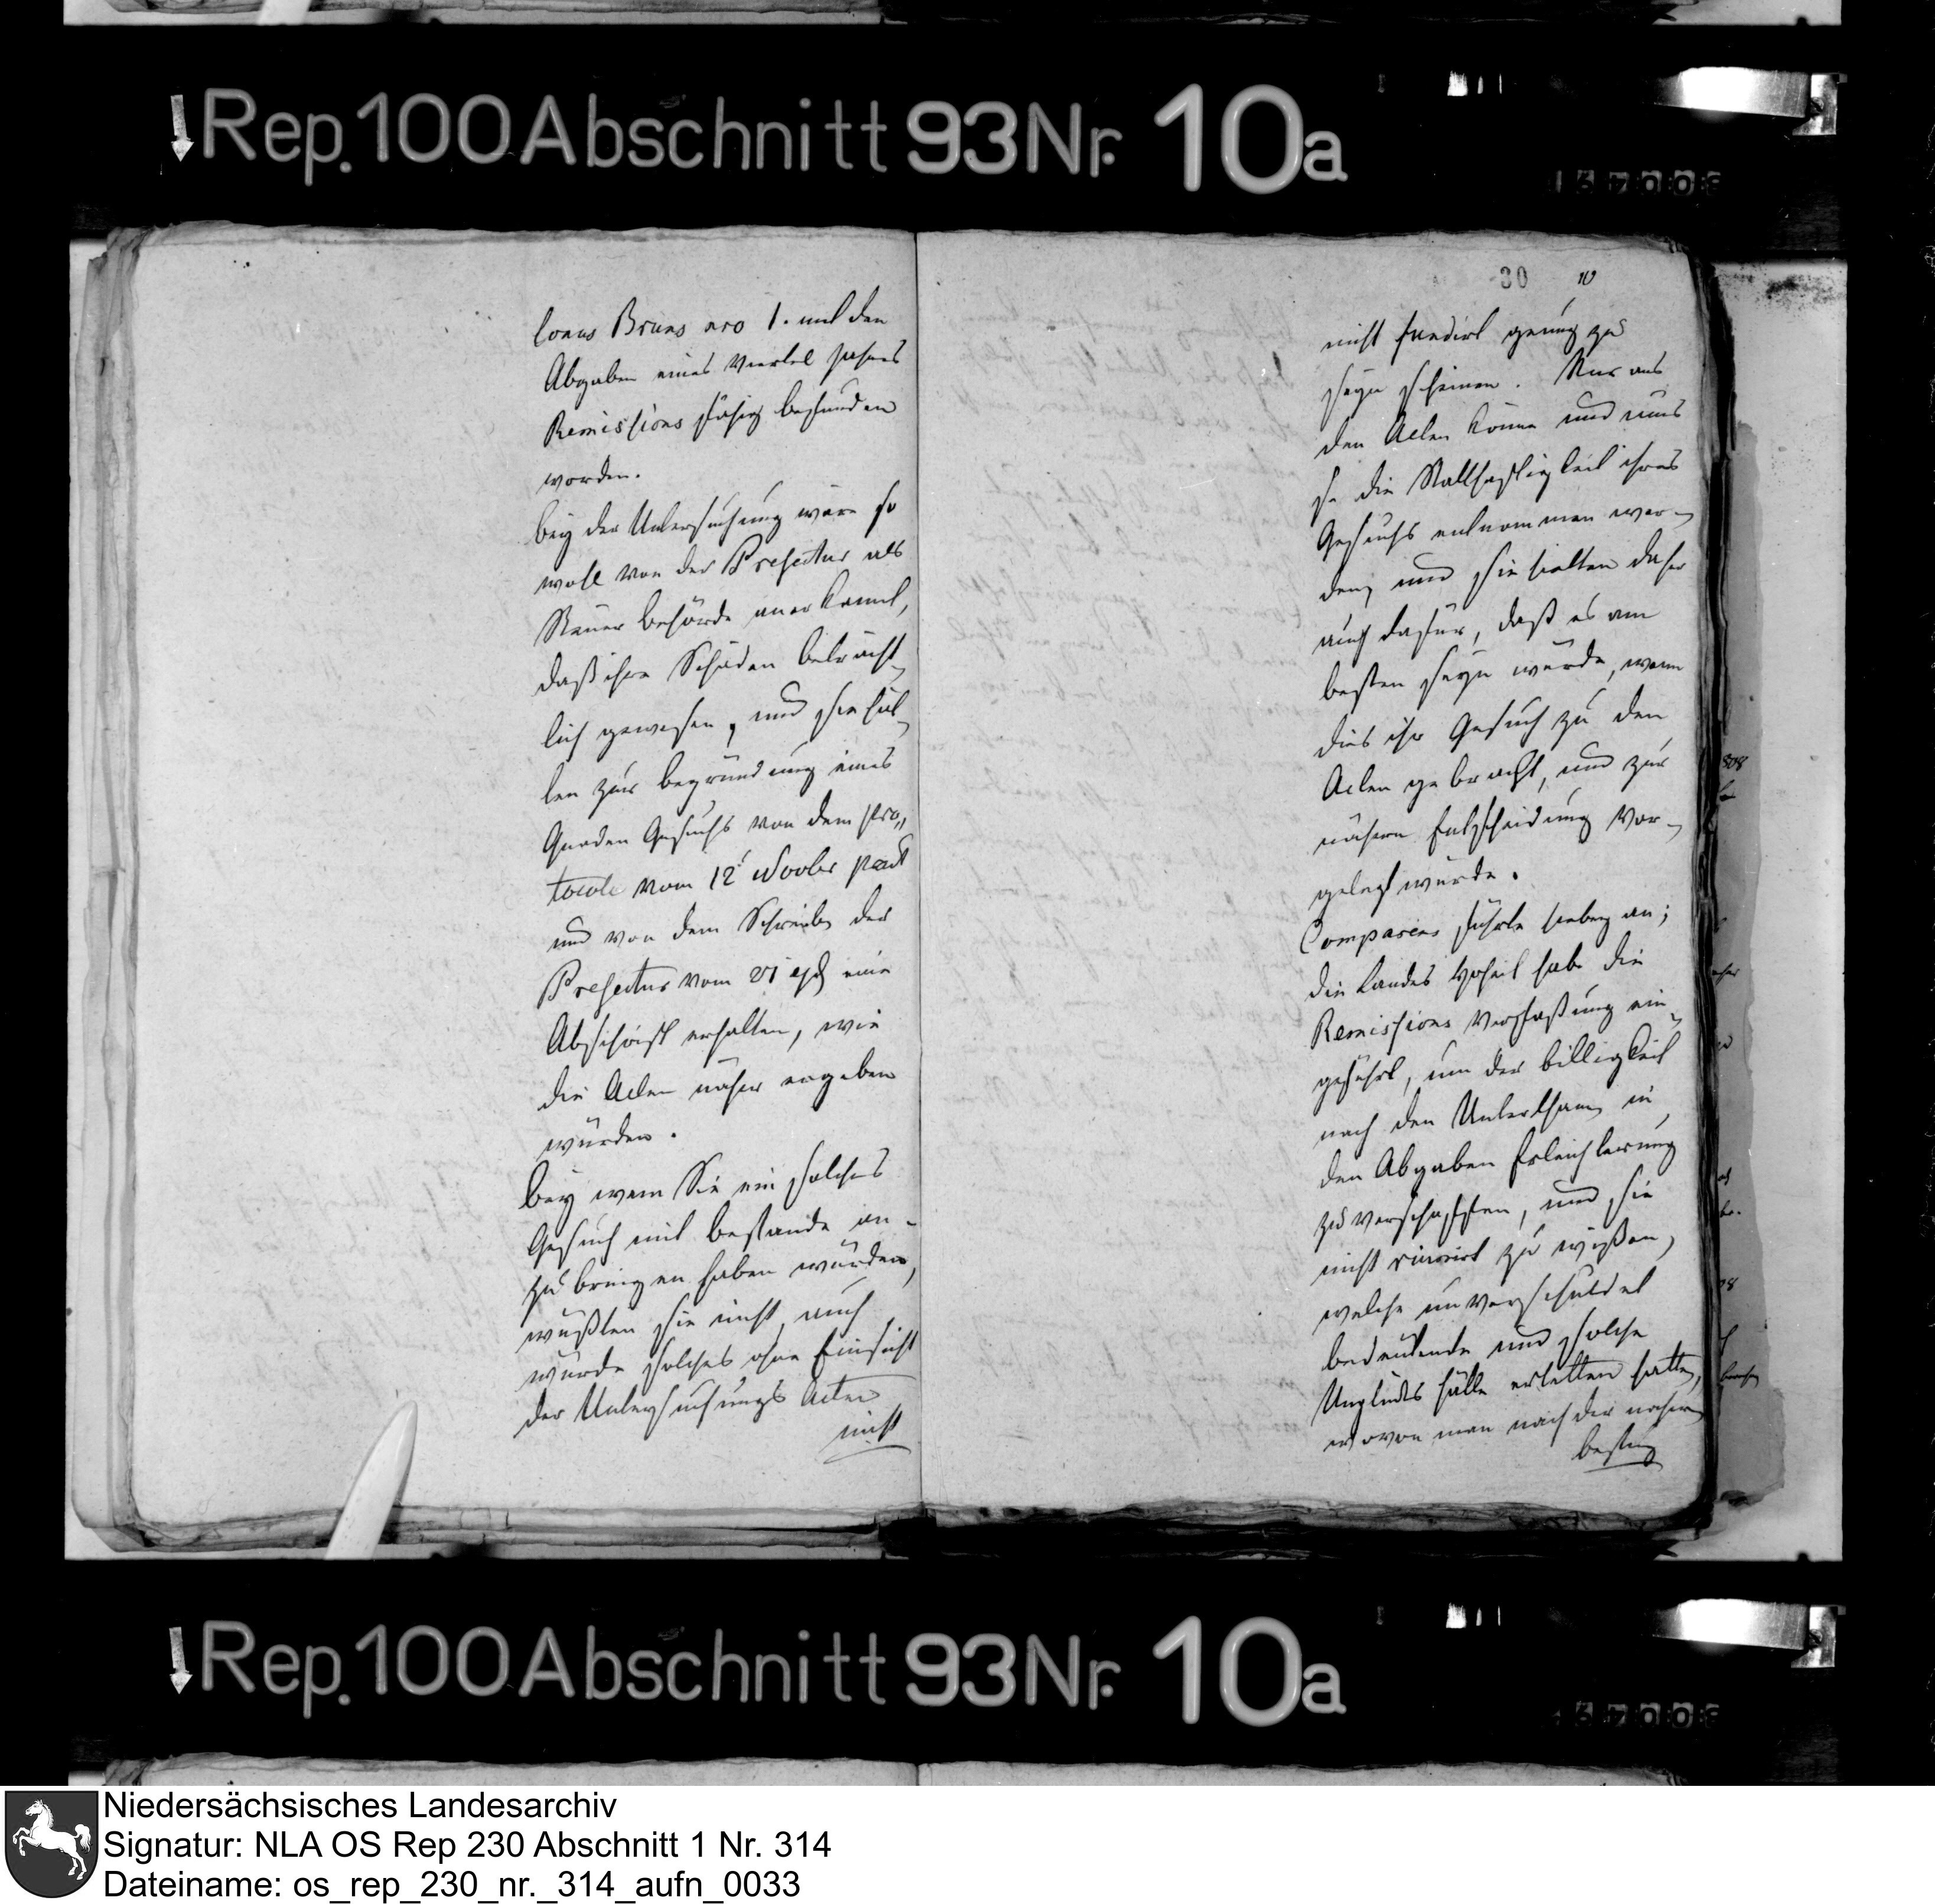 Rep. 100 Abschnitt 93 Nr. 10a
lonus Bruns nro 1. mit den
Abgaben eines Viertel Jahres
Remissions fähig befunden
worden.
Bey der Untersuchung wäre so
wohl von der Prefectur als
Steuer Behörde anerkannt,
daß ihre Schäden beträcht,
lich gewesen, und sie hät,
ten zur Begründung eines
Gnaden Gesuchs von dem Pro,,
tocole vom 12 Novbr
und von dem Schreiben der
Prefectur vom 21 ejd eine
Abschrift erhalten, wie
die Acten näher ergeben
würden.
Bey wem Sie ein solches
Gesuch mit Bestande an-
zubringen haben würden,
wüßten sie nicht, auch
würde solches ohne Einsicht
der Untersuchungs Acten
nicht
30 10
nicht fundirt genug zu
seyn scheinen. Nur aus
den Acten könne und müs
se die Statthaftigkeit ihres
Gesuchs entnommen wer-
den, und sie hielten daher
auch dafür, daß es am
besten seyn würde, wenn
dies ihr Gesuch zu den
Acten gebracht, und zur
nähern Entscheidung vor-
gelegt würde.
Comparens führte hiebey an;
die Landes Hoheit habe die
Remissions Verfaßung ein-
geführt, um der Billigkeit
nach den Unterthanen in
den Abgaben Erleichterung
zu verschaffen, und sie
nicht ruinirt zu wißen,
welche unverschuldet
bedeutende und solche
Unglücks fälle erlitten hatten,
wovon man nach der nähern
Rep. 100 Abschnitt 93 Nr. 10a
Niedersächsisches Landesarchiv
Signatur: NLA OS Rep 230 Abschnitt 1 Nr. 314
Dateiname: os_rep_230_nr._314_aufn_0033